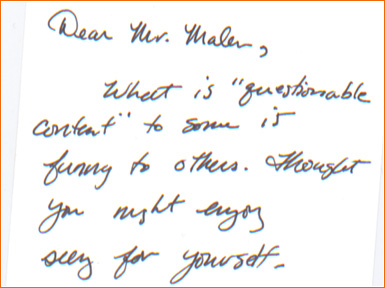 Dear Mr. Maler,
What is "questionable
content" to some is
funny to others. Thought
you might enjoy
seeing for yourself.